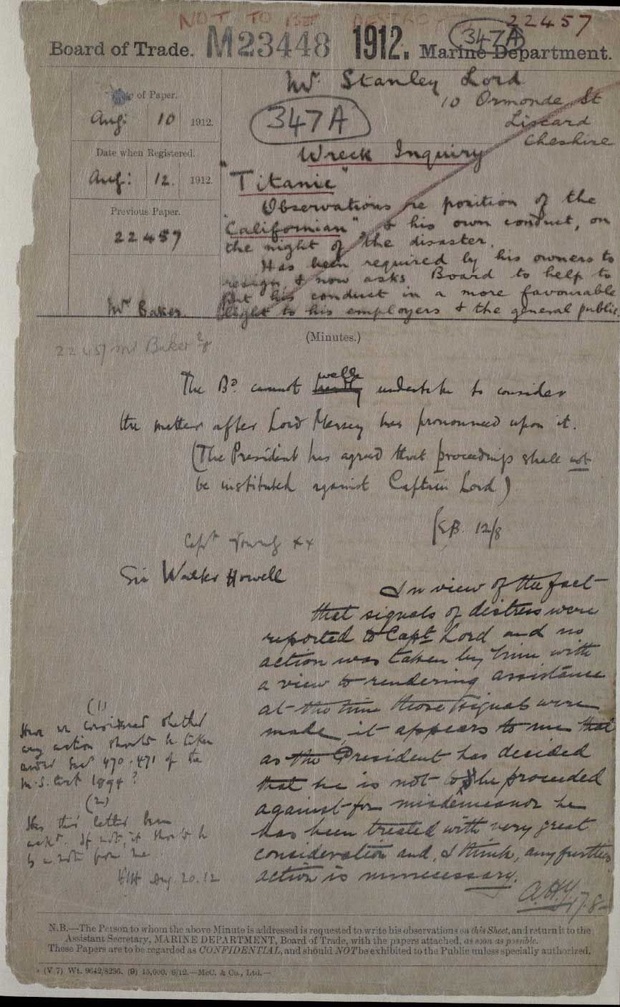 NOT TO BE DESTROY
22457
Board of Trade. M23448 1912. Marine Department.
347A
Date of Paper.
Aug: 10 1912.
Date when Registered.
Aug: 12. 1912.
Previous Paper.
22457
Mr Baker.
Mr. Stanley Lord
10 Ormonde St
Liscard
Cheshire
347A
Wreck Inquiry
"Titanic"
Observations re position of the
"Californian" & his own conduct, on
the night of the disaster.
Has been required by his owners to
resign, & now asks Board to help to
put his conduct in a more favourable
light to his employers & the general public.
(Minutes.)
22457 Mr Baker
The Bd cannot really well undertake to consider
the matter after Lord Mersey has pronounced upon it.
(The President has agreed that proceedings shall not
be instituted against Captain Lord)
12/8
Capt Young
Sir Walter Howell
In view of the fact
that signals of distress were
reported to Capt Lord and no
action was taken by him with
a view to rendering assistance
at the time those signals were
made, it appears to me that
as the President has decided
that he is not to be proceeded
against for misdemeanor he
has been treated with very great
consideration and, I think, any further
action is unnecessary.
A.H.Y. 17.8
(1)
Have we considered whether
any action should be taken
under Sec 470-471 of the
M.S. Act 1894?
(2)
Has this letter been
ackd. If not, it should be
Aug. 20. 12
N.B.—The Person to whom the above Minute is addressed is requested to write his observations on this Sheet, and return it to the
Assistant Secretary, MARINE DEPARTMENT, Board of Trade, with the papers attached, as soon as possible.
These Papers are to be regarded as CONFIDENTIAL, and should NOT be exhibited to the Public unless specially authorized.
(V 7) Wt. 9642/8236. (9) 15,000. 6/12.—McC. & Co., Ltd.—